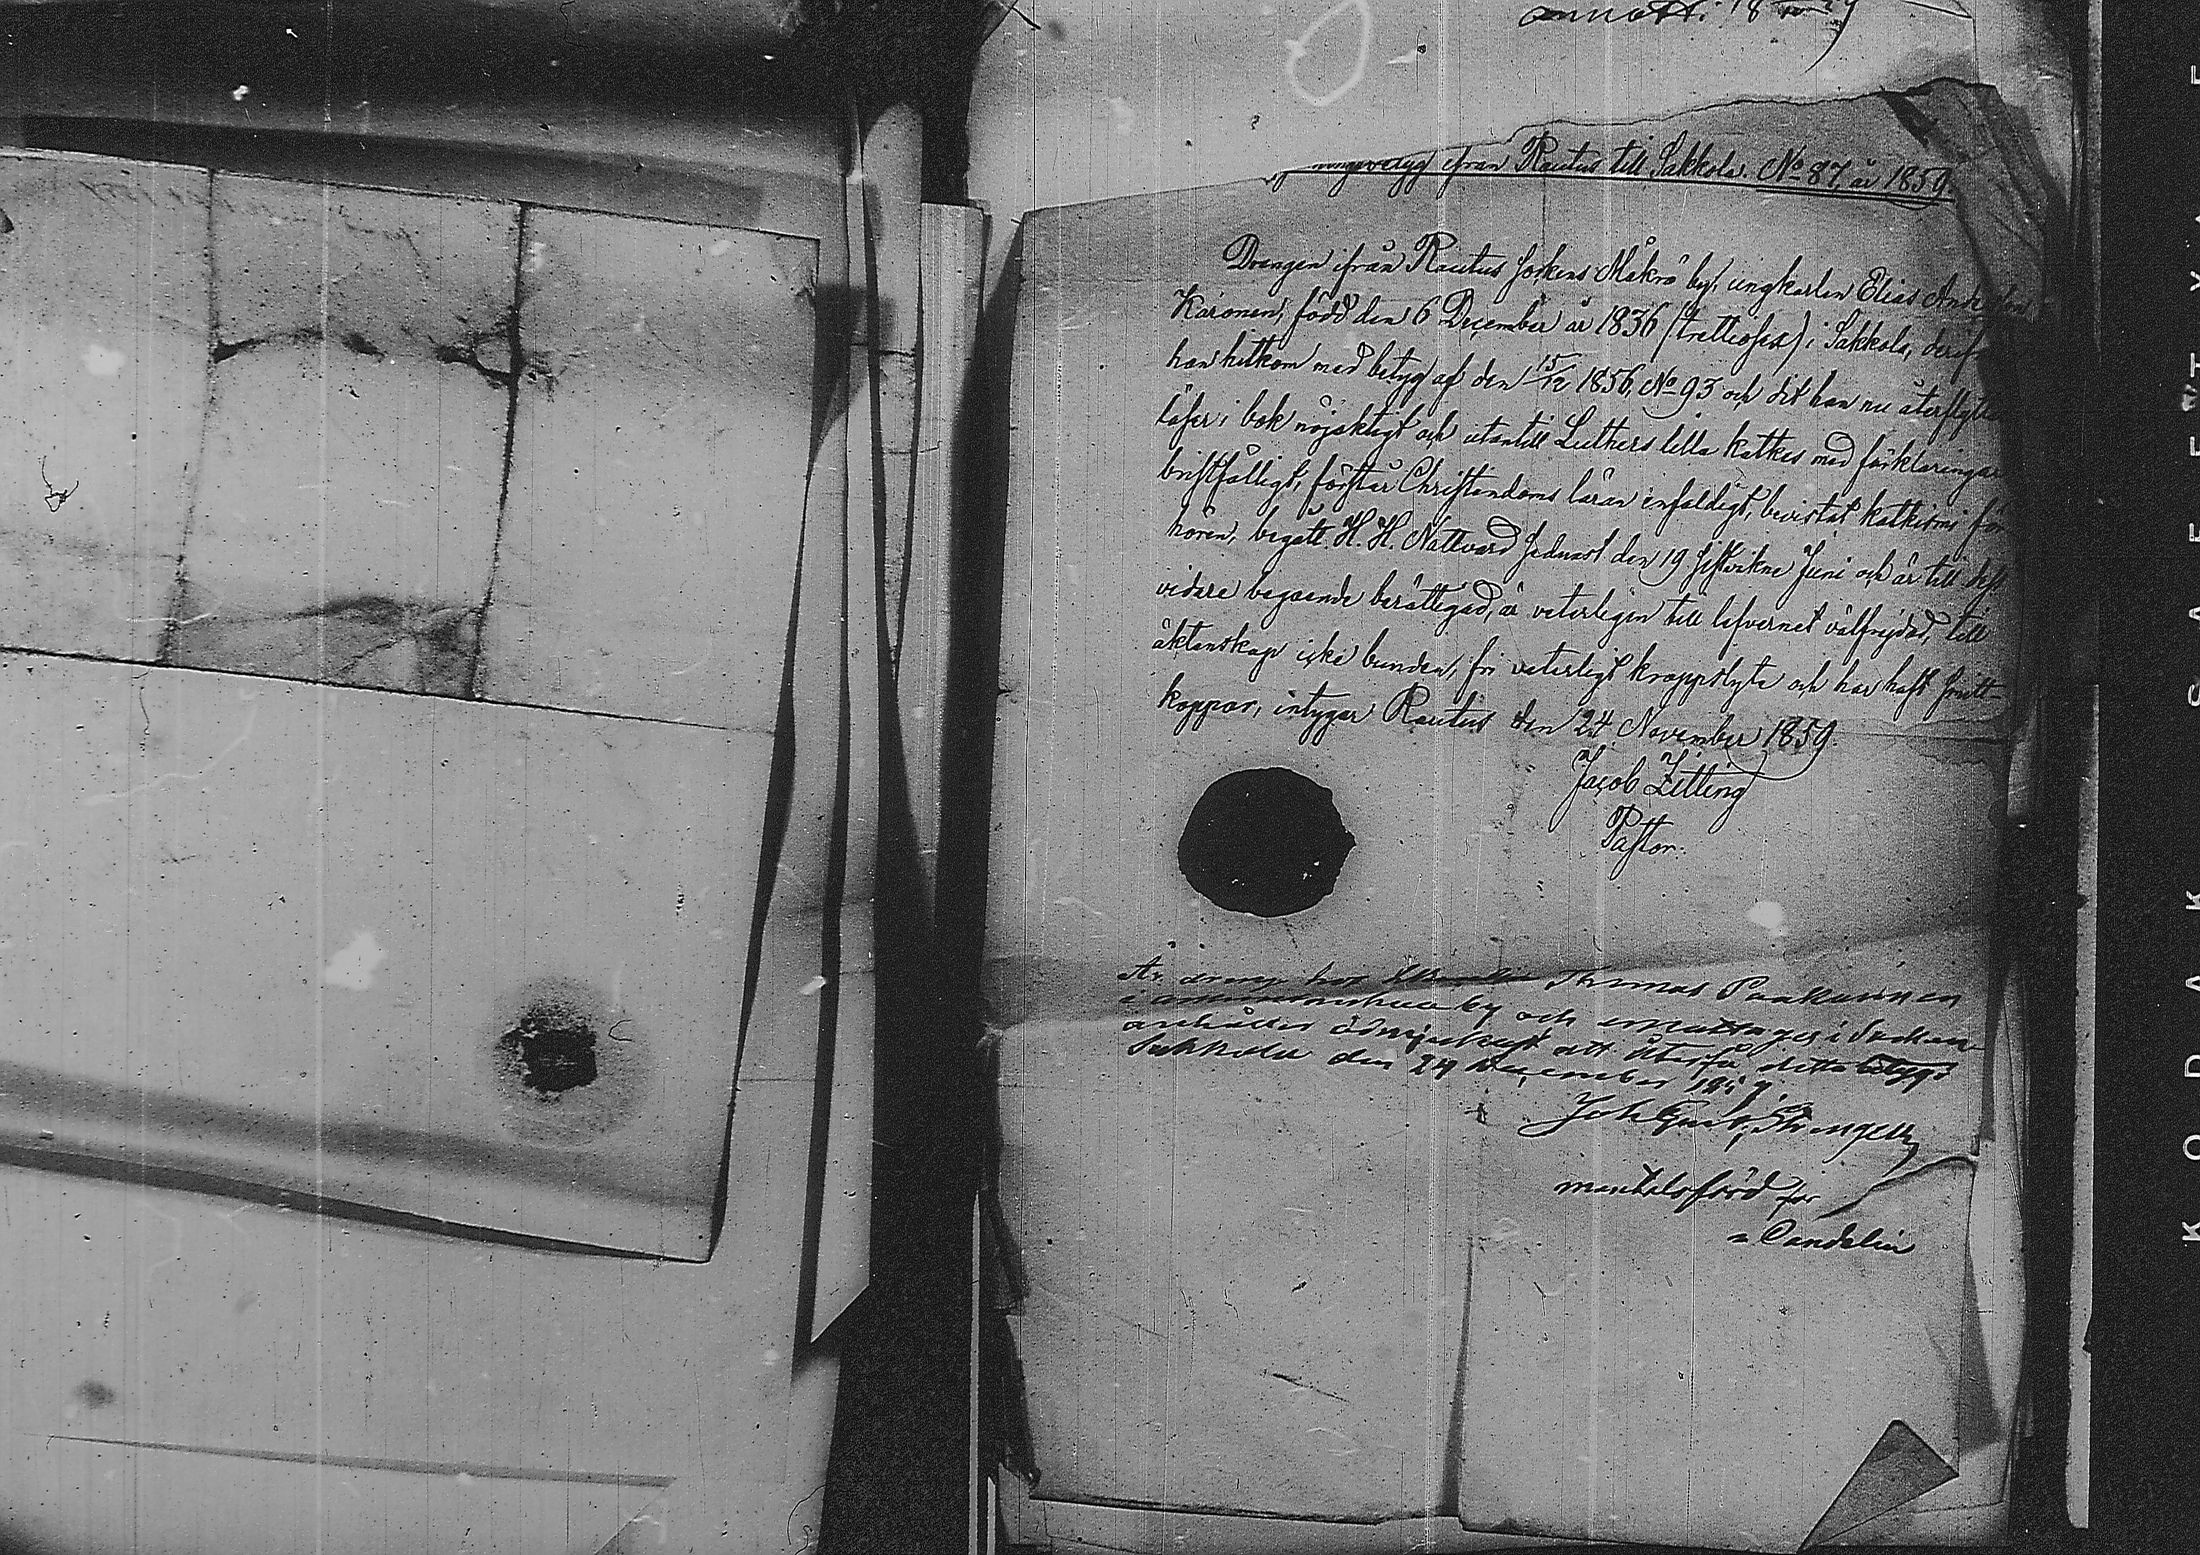 ningsbetyg ifrån Rautus till Sakkola. No 87, år 1859.
Drängen ifrån Rautus Sockens Mäkrä by, ungkarlen Elias Andersson
Karonen, född den 6 December år 1836 (trettiosex) i Sakkola, derifrån
han hitkom med betyg af den 15/12 1856, No 93 och dit han nu återflyttar
läser i bok nöjaktigt och utantill Luthers lilla kathes med förklaringar
bristfälligt, förstår Christendoms läran enfaldigt, bevistat katkismi för
hören, begått H. H. Nattvard sednast den 19 sistvikne Juni och är till dess
vidare begående berättigad, är veterligen till lefvernet välfrejdad, till
äktenskap icke bunden, fri veterligt kroppslyte och har haft smitt
koppor, intygar Rautus den 24 November 1859.
Jacob Zitting
Pastor.
Är dräng hos Thomas Paukkunen
i by och emottages i Socken
anhålles ödmjukast att återfå detta betyg
Sakkola den 29 December 1859.
Joh Gust. Strengell
mantalsförd för
Candelin
KODAK SAFETY